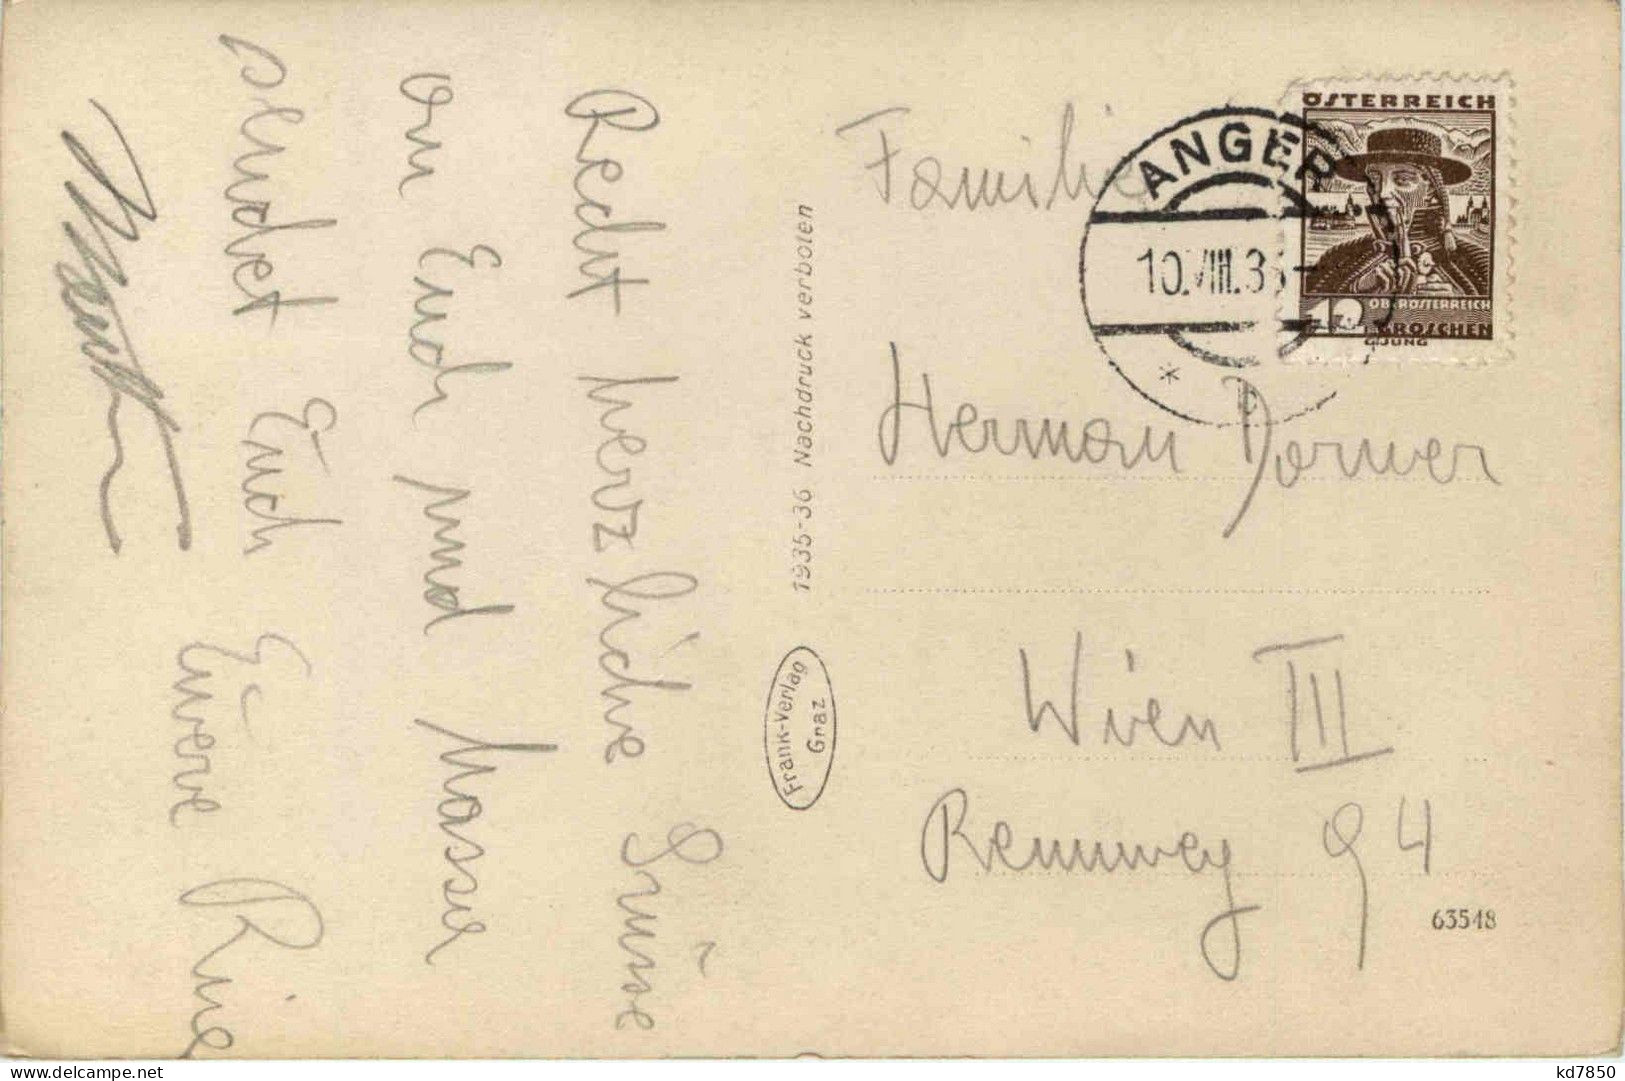 Recht herzliche Grüsse
an Euch und Hasse
sendet Euch Euere
1935-36 Nachdruck verboten
Frank-Verlag
Graz
Familie
Herman Dorner
Wien III
Rennweg 94
63548
ANGER
10.VIII.36
* b
ÖSTERREICH
12 OBERÖSTERREICH
GROSCHEN
G.JUNG
www.delcampe.net
kd7850